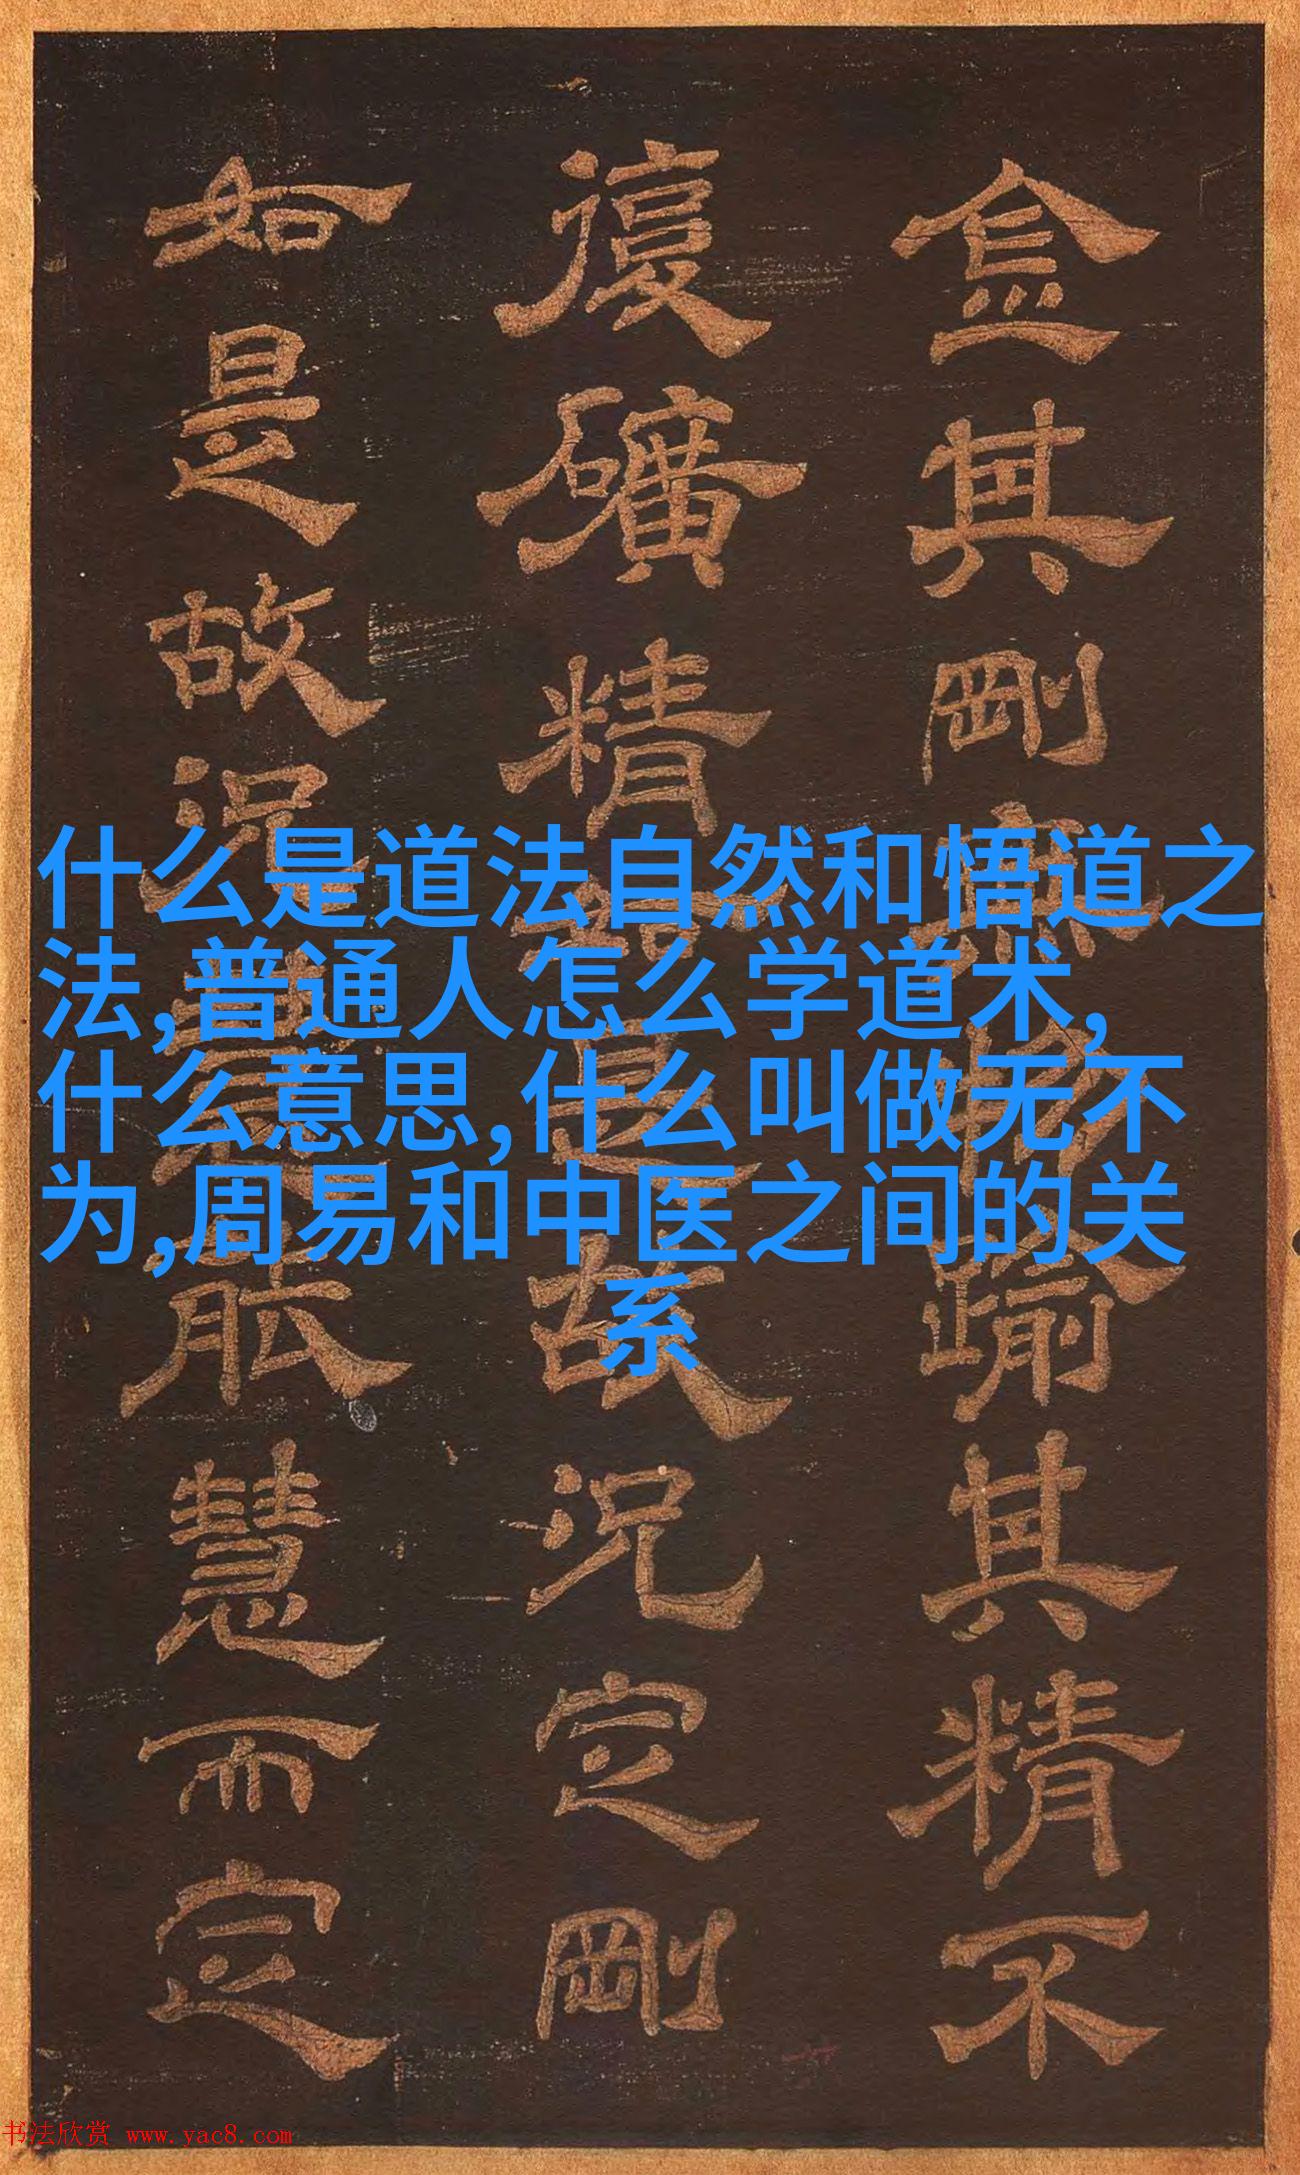 金其剛踰其精不
復礦精是故況定剛
如是故況慧而定
什么是道法自然和悟道之
法,普通人怎么学道术,
什么意思,什么叫做无不
为,周易和中医之间的关
系
书法欣赏 www.yac8.com